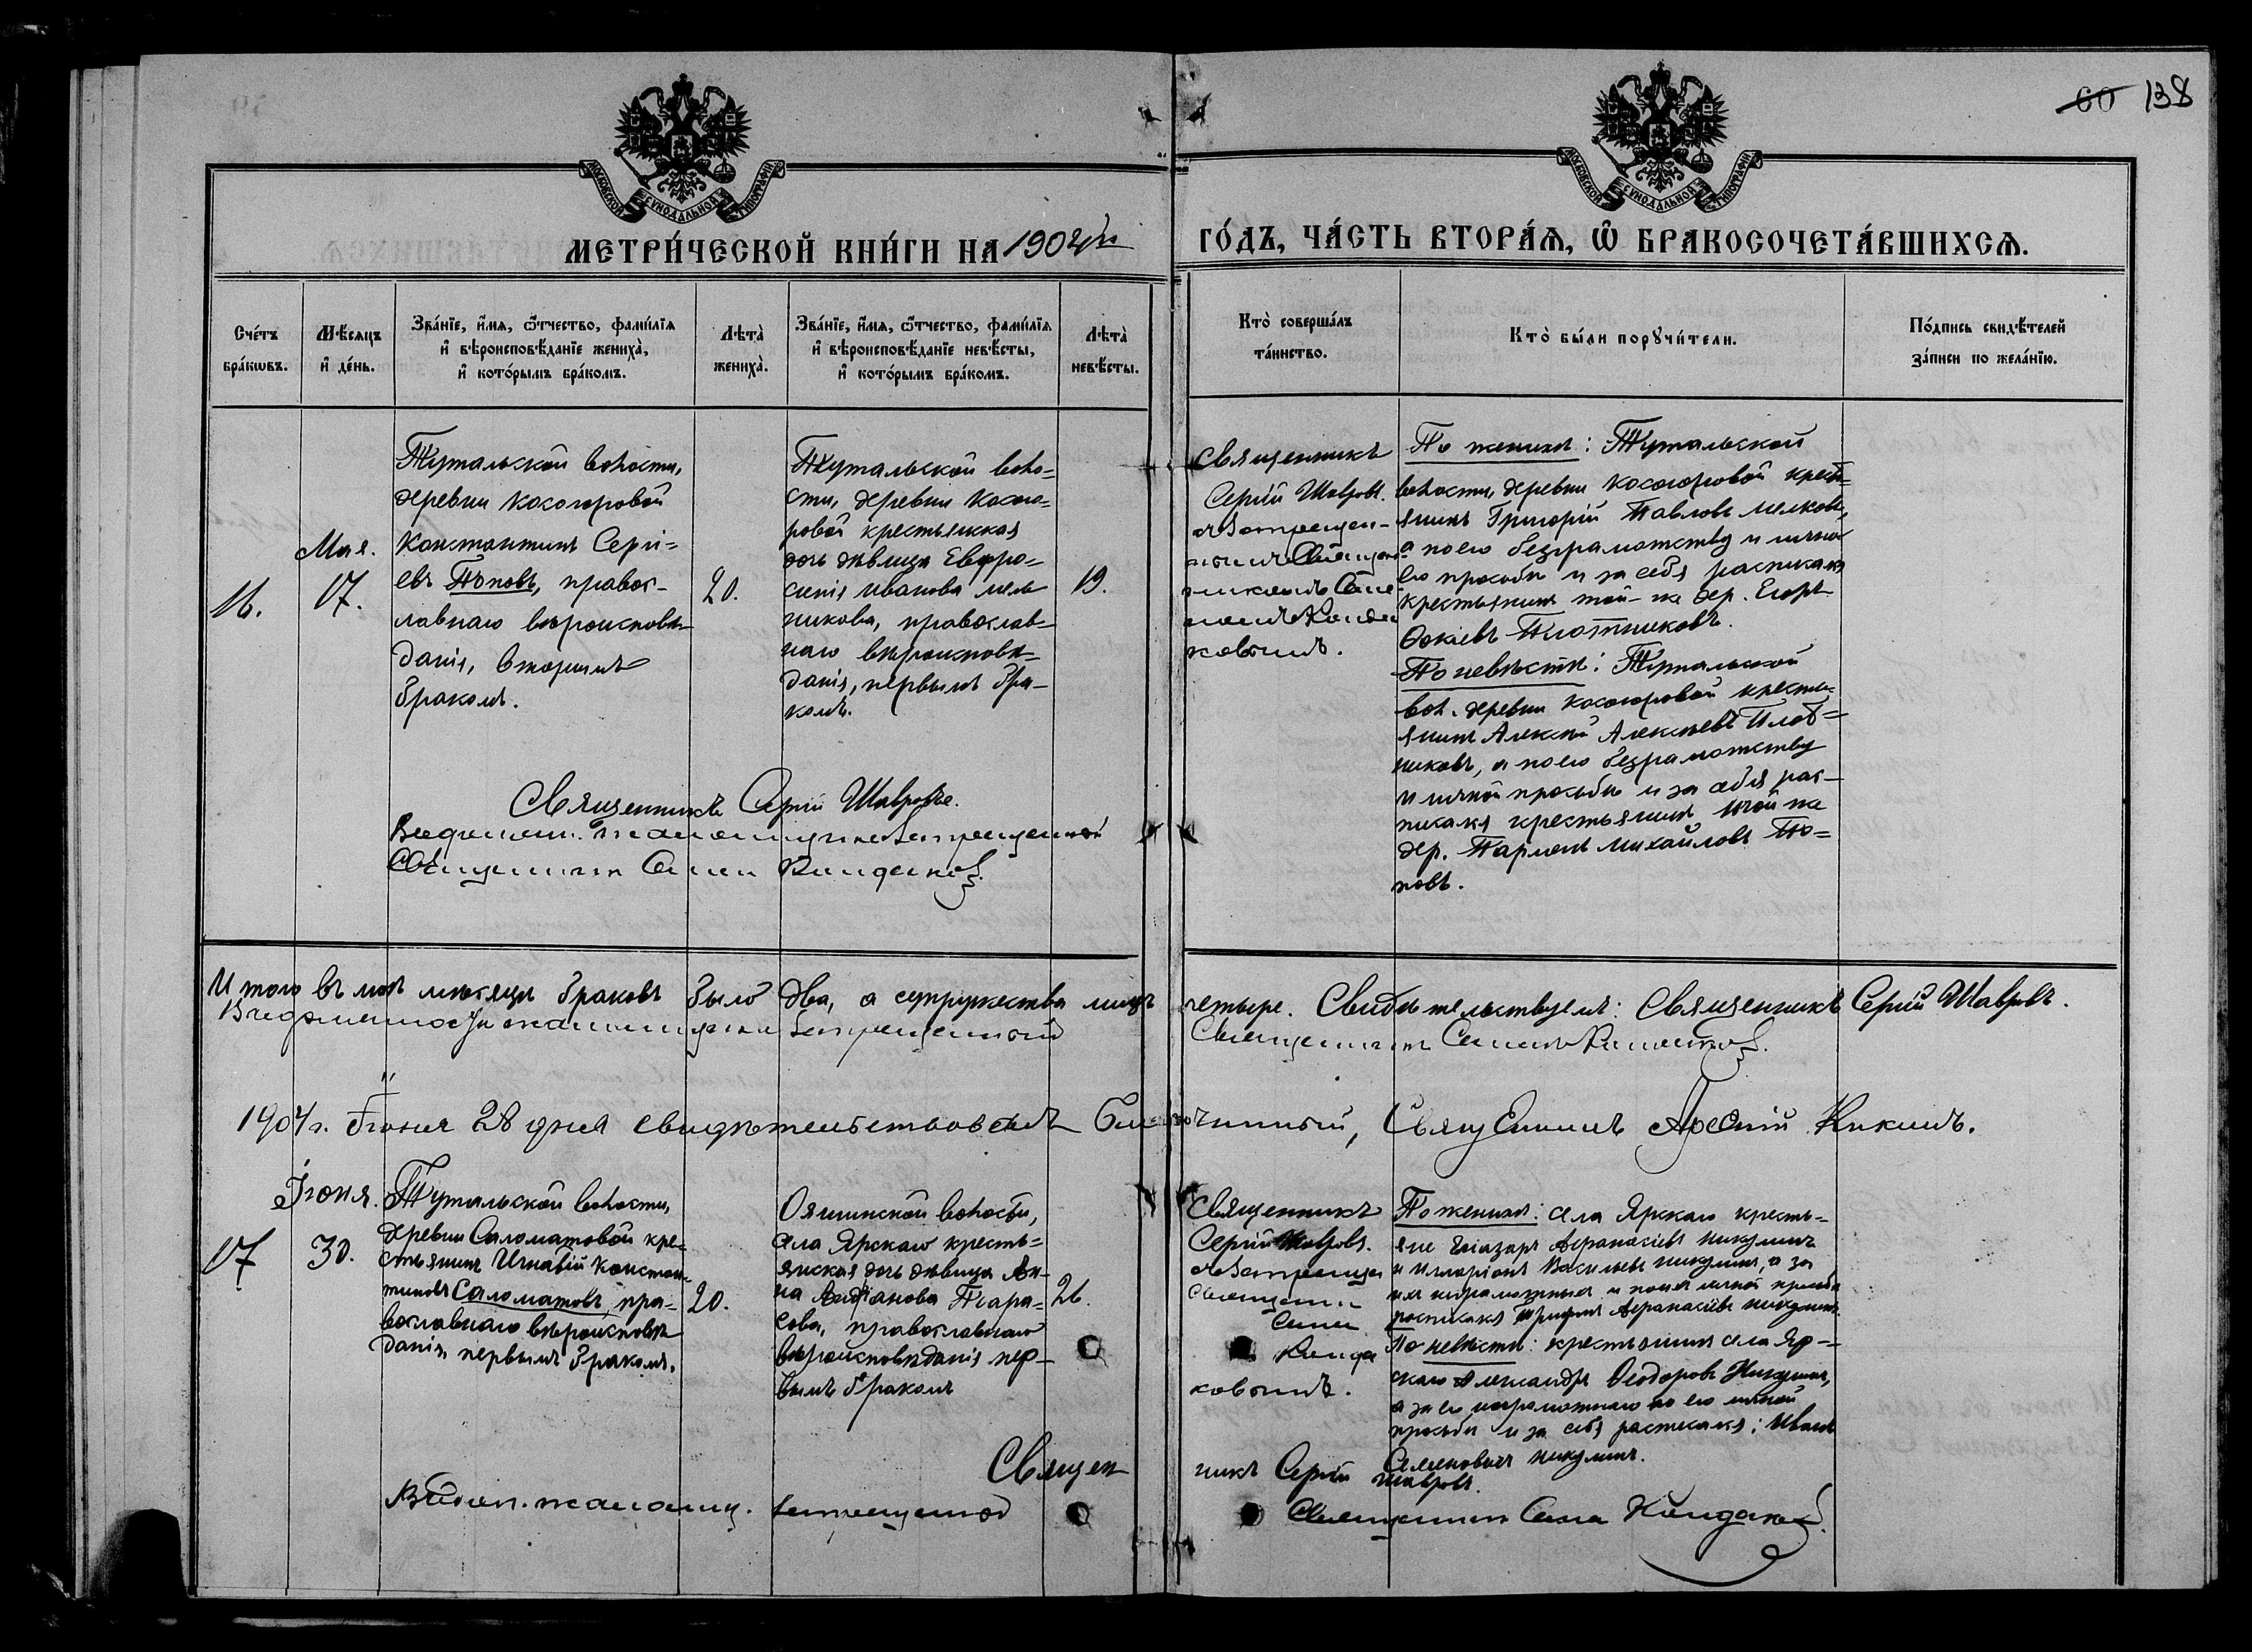 60 138
МОСКОВСКОЙ СѴНОДАЛЬНОЙ ТИПОГРАФІИ
МОСКОВСКОЙ СѴНОДАЛЬНОЙ ТИПОГРАФІИ
МЕТРИ́ЧЕСКОЙ КНИ́ГИ НА 1904й
ГО́ДЪ, ЧА́СТЬ ВТОРА́Ѧ, Ѽ БРАКОСОЧЕТА́ВШИХСѦ.
Сче́тъ
бра́кѡвъ.
Мѣ́сяцъ
и де́нь.
Зва́нїе, и́мѧ, ѻ҆́тчество, фами́лїѧ
и҆ вѣроисповѣ́данїе жениха̀,
и҆ кото́рымъ бра́комъ.
Лѣта̀
жениха̀.
Зва́нїе, и́мѧ, ѻ҆́тчество, фами́лїѧ
и҆ вѣроисповѣ́данїе невѣ́сты,
и҆ кото́рымъ бра́комъ.
Лѣта̀
невѣ́сты.
Кто̀ соверша́лъ
та́инство.
Кто̀ бы́ли порꙋчи́тели.
По́дпись свидѣ́телей
за́писи по жела́нїю.
16.
Мая.
17.
Тутальской волости,
деревни Косогоровой
Константинъ Сергі-
евъ Поповъ, правос-
лавнаго вѣроисповѣ-
данія, вторымъ
бракомъ.
20.
Тутальской воло-
сти, деревни Косого-
ровой крестьянская
дочь дѣвица Евфро-
синія Иванова Мель
никова, православ-
наго вѣроисповѣ-
данія, первымъ бра-
комъ.
19.
Священникъ
Сергій Шавровъ.
ковымъ.
По женихѣ: Тутальской
волости, деревни Косогоровой кресть-
янинъ Григорій Павловъ Мелковъ,
а по его безграмотству и личной
его просьбѣ и за себя расписался
крестьянинъ той-же дер. Егоръ
Плотниковъ.
По невѣстѣ: Тутальской
вол. деревни Косогоровой кресть-
янинъ Алексѣй Алексѣевъ Плот-
никовъ, а по его безграмотству
и личной просьбѣ и за себя рас-
писался крестьянинъ той же
дер. Парменъ Михайловъ По-
повъ.
Священникъ Сергій Шавровъ.
Священникъ
Итого въ маѣ мѣсяцѣ браковъ было два, а супружества лицъ четыре. Свидѣтельствуемъ: Священникъ Сергій Шавровъ.
Священникъ
1904 г. Іюня 28 дня свидѣтельствовалъ Благочинный, Священникъ Арсеній Кикинъ.
17
Іюня.
30.
Тутальской волости,
деревни Саломатовой кре-
стьянинъ Игнатій Констан-
тиновъ Саломатовъ, пра-
вославнаго вѣроисповѣ-
данія, первымъ бракомъ.
20.
Ояшинской волости,
села Ярскаго кресть-
янская дочь дѣвица Ан-
на Тара-
сова, православнаго
вѣроисповѣданія пер-
вымъ бракомъ
26.
Священникъ
Сергій Шавровъ.
ковымъ.
По женихѣ: села Ярскаго кресть-
яне Еліазаръ Аѳанасіевъ Никулинъ
и Илларіонъ Васильевъ Никулинъ, а за
нихъ неграмотныхъ и по ихъ личной просьбѣ
росписался Трифонъ Аѳанасіевъ Никулинъ.
По невѣстѣ: крестьянинъ села Яр-
скаго Александръ Ѳеодоровъ Никулинъ,
а за его неграмотнаго по его личной
просьбѣ и за себя росписался: Иванъ
Семеновичъ Никулинъ.
Священникъ Сергій Шавровъ.
Священникъ